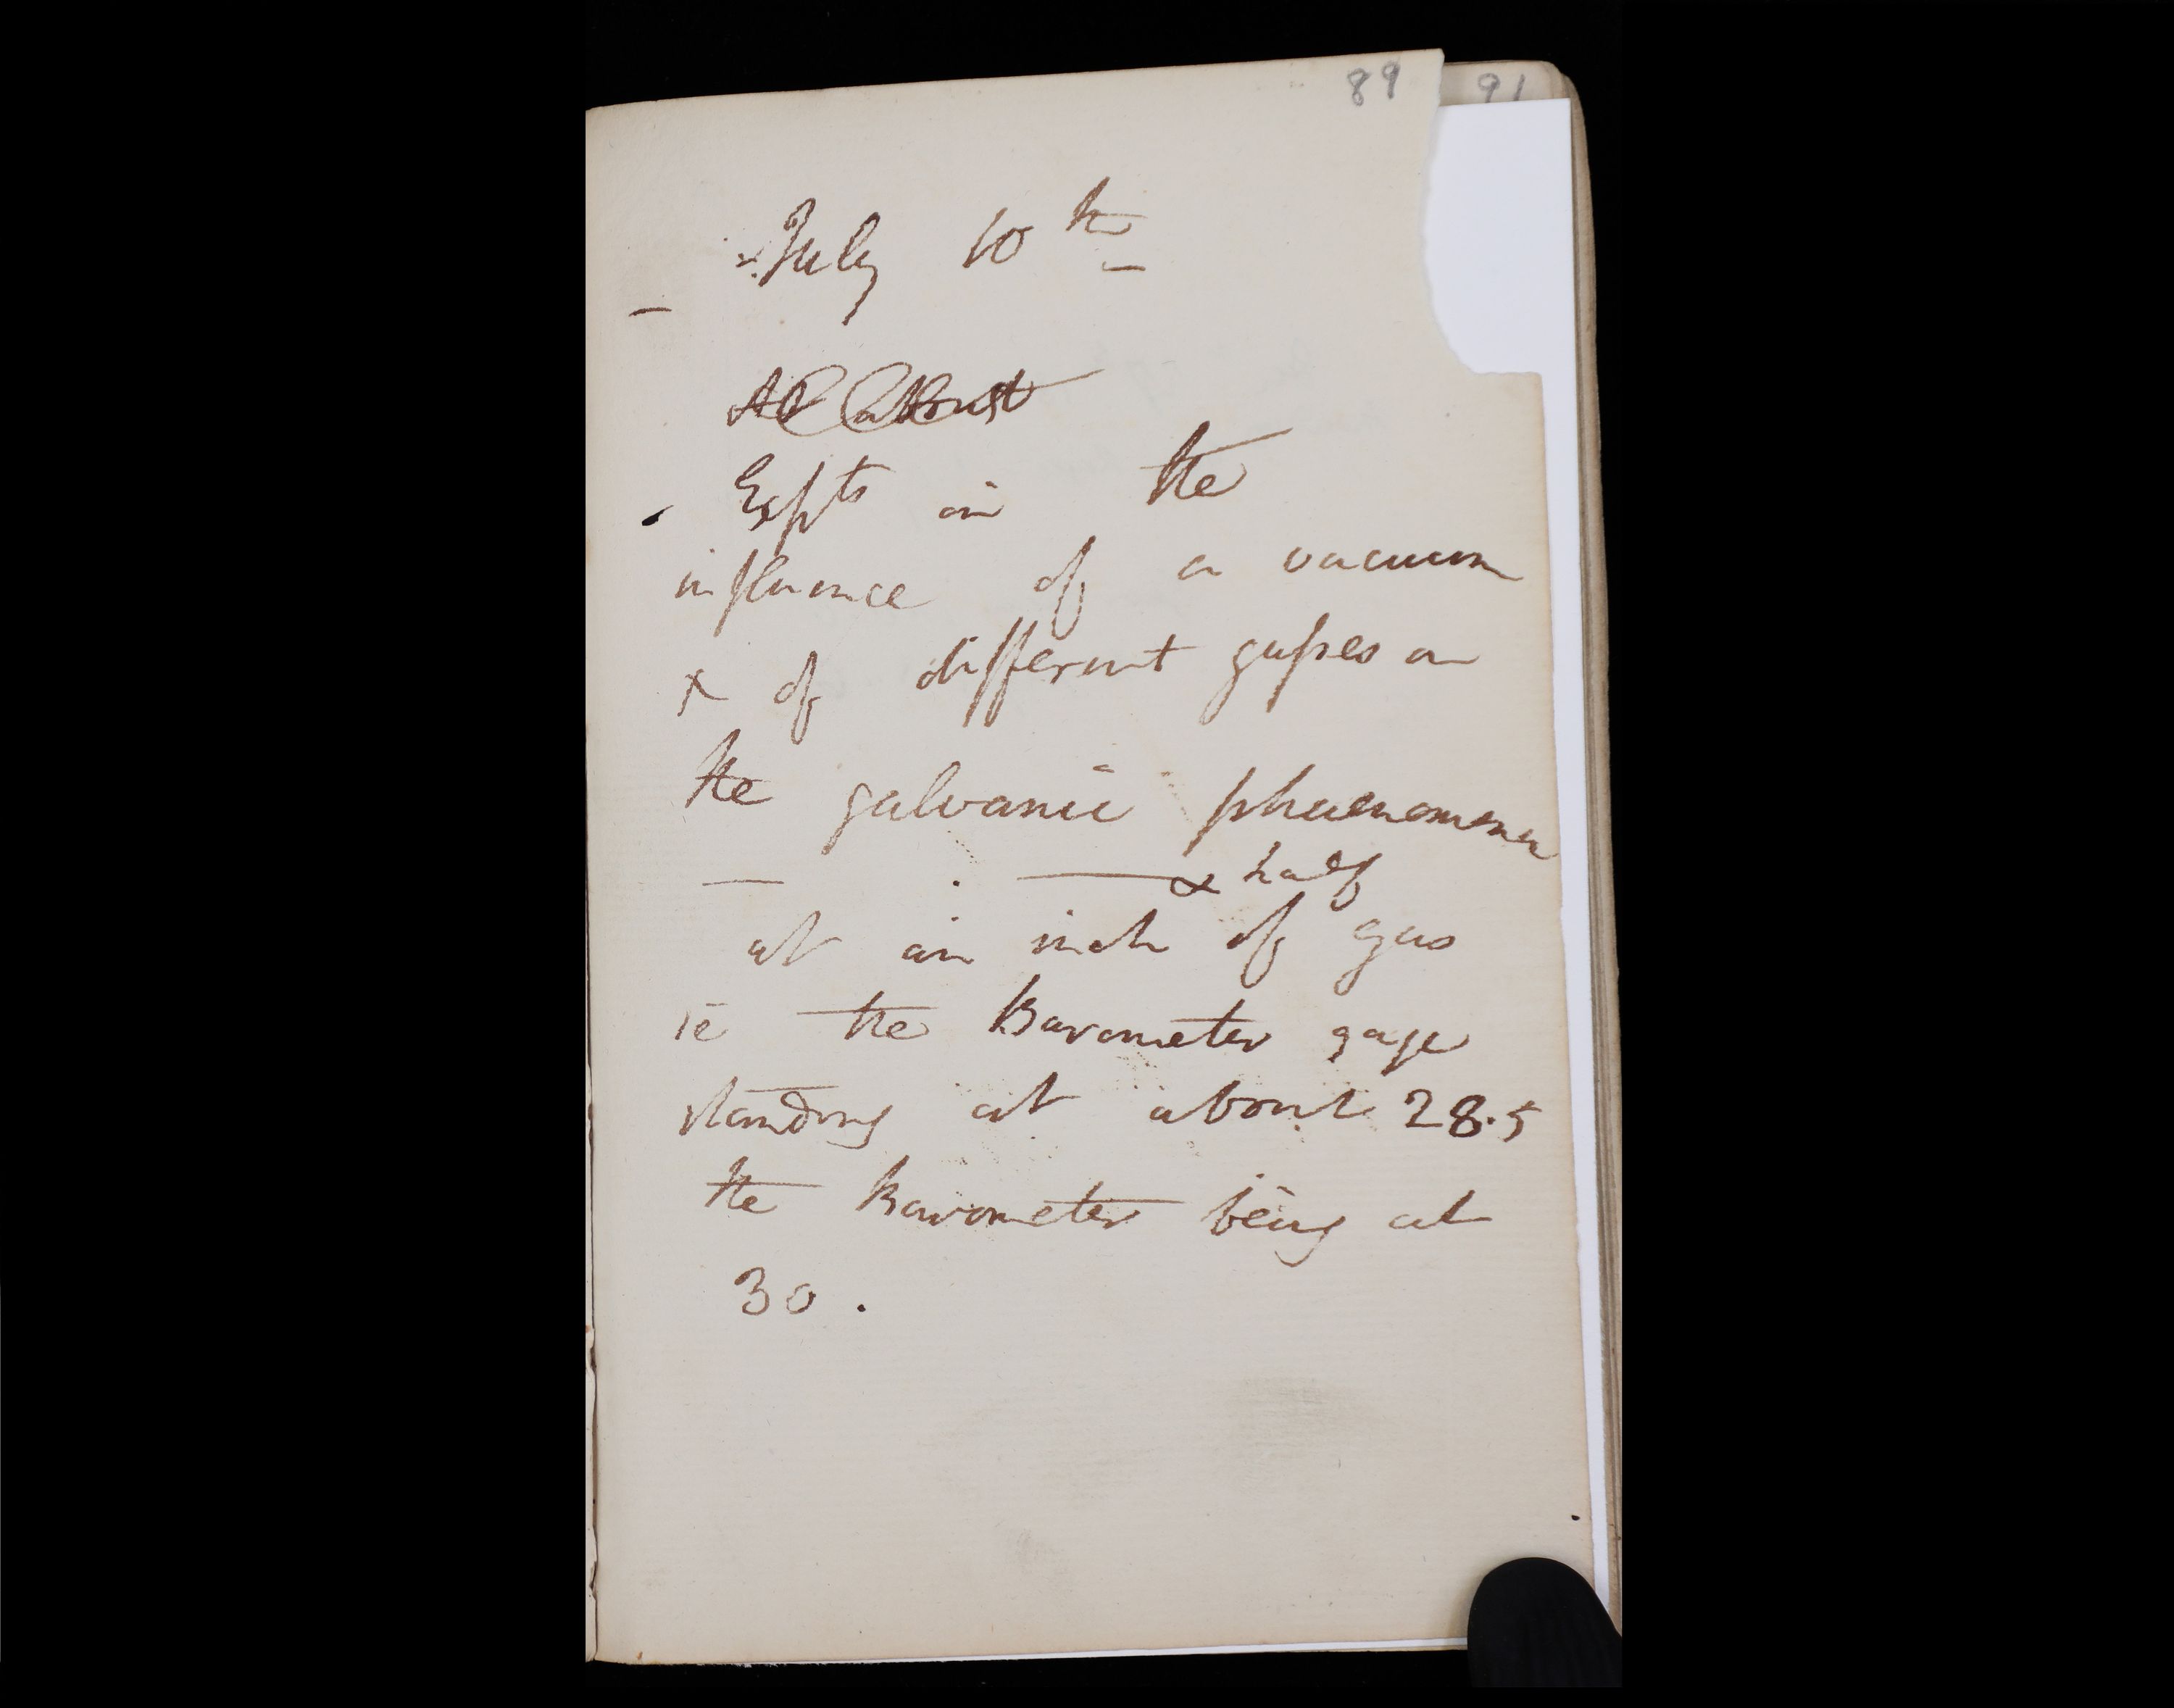 89
91
July 10th
At about
Expts on the
influence of a vacuum
& of different gasses on
the galvanic phaenomena
& half
at an inch of gas
ie the Barometer gage
standing at about 28.5
the Barometer being at
30.